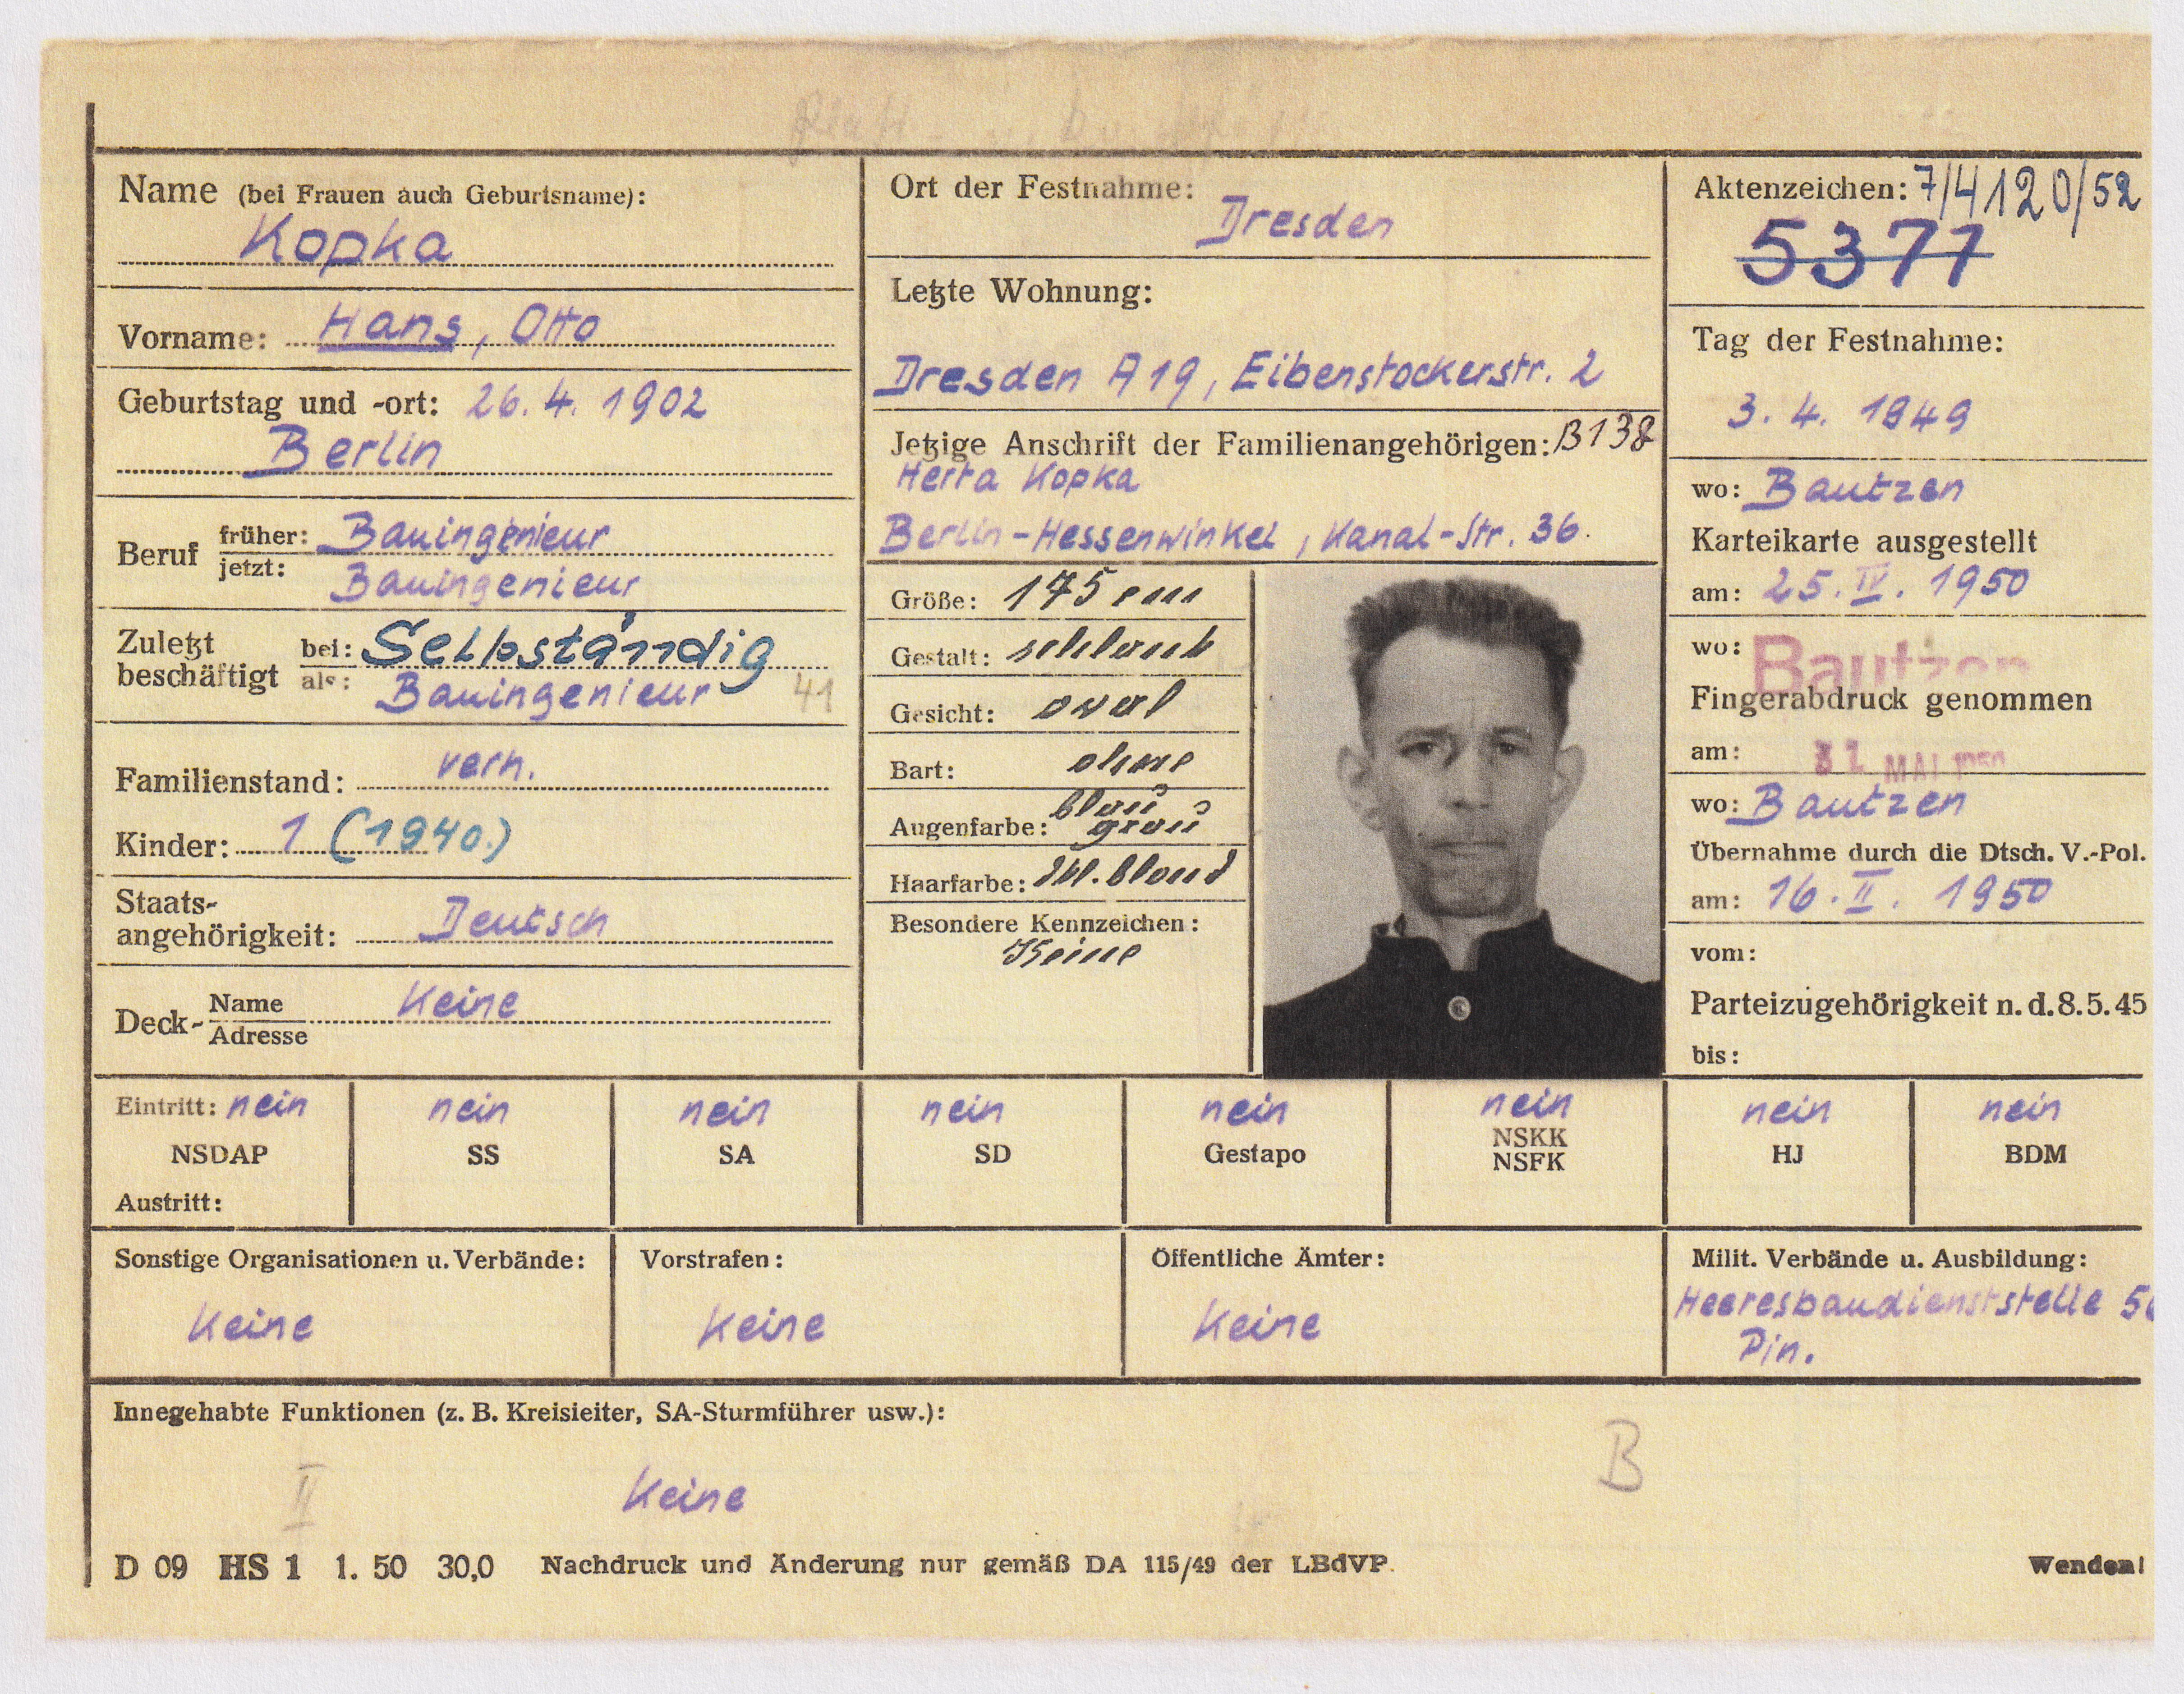 Name (bei Frauen auch Geburtsname):
Kopka
Vorname: Hans, Otto
Geburtstag und -ort: 26. 4. 1902
Berlin
Beruf früher: Bauingenieur
jetzt: Bauingenieur
Zuletzt beschäftigt bei: Selbständig
als: Bauingenieur 41
Familienstand: verh.
Kinder: 1 (1940.)
Staats-
angehörigkeit: Deutsch
Deck- Name Keine
Adresse
Ort der Festnahme:
Dresden
Letzte Wohnung:
Dresden A 19, Eibenstockerstr. 2
Jetzige Anschrift der Familienangehörigen: B138
Herta Kopka
Berlin-Hessenwinkel, Kanal-Str. 36.
Größe: 175 cm
Gestalt: schlank
Gesicht: oval
Bart: ohne
blau
Augenfarbe: grau
Haarfarbe: dkl. blond
Besondere Kennzeichen:
Keine
Aktenzeichen: 7/4120/52
5377
Tag der Festnahme:
3. 4. 1949
wo: Bautzen
Karteikarte ausgestellt
am: 25. IV. 1950
wo: Bautzen
Fingerabdruck genommen
am: MAI 1950
wo: Bautzen
Übernahme durch die Dtsch. V.-Pol.
am: 16. II. 1950
vom:
Parteizugehörigkeit n. d. 8. 5. 45
bis:
Eintritt: nein nein nein nein nein nein nein nein
NSDAP SS SA SD Gestapo NSKK NSFK HJ BDM
Austritt:
Sonstige Organisationen u. Verbände:
Keine
Vorstrafen:
Keine
Öffentliche Ämter:
Keine
Milit. Verbände u. Ausbildung:
Heeresbaudienststelle
Pin.
Innegehabte Funktionen (z. B. Kreisleiter, SA-Sturmführer usw.):
B
II
Keine
D 09 HS 1 1. 50 30,0 Nachdruck und Änderung nur gemäß DA 115/49 der LBdVP.
Wenden!